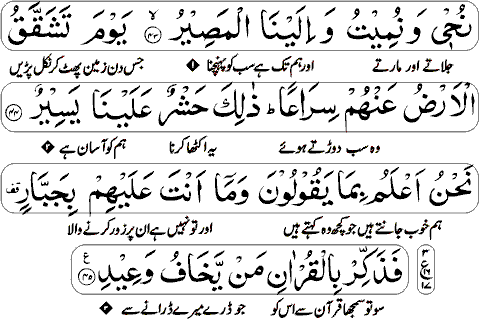 نُحْیٖ وَنُمِیْتُ وَاِلَیْنَا الْمَصِیْرُ ﴿۴۳﴾ۙ یَوْمَ تَشَقَّقُ
جلاتے اور مارتے اور ہم تک ہے سب کو پہنچنا ۱ جس دن زمین پھٹ کر نکل پڑیں
الْاَرْضُ عَنْهُمْ سِرَاعًا ؕ ذٰلِكَ حَشْرٌ عَلَیْنَا یَسِیْرٌ ﴿۴۴﴾
وہ سب دوڑتے ہوئے یہ اکٹھا کرنا ہم کو آسان ہے ۲
نَحْنُ اَعْلَمُ بِمَا یَقُوْلُوْنَ وَمَاۤ اَنْتَ عَلَیْهِمْ بِجَبَّارٍ قف
ہم خوب جانتے ہیں جو کچھ وہ کہتے ہیں اور تو نہیں ہے ان پر زور کرنے والا
فَذَكِّرْ بِالْقُرْاٰنِ مَنْ یَّخَافُ وَعِیْدِ ﴿۴۵﴾ ع
سو تو سمجھا قرآن سے اس کو جو ڈرے میرے ڈرانے سے ۳